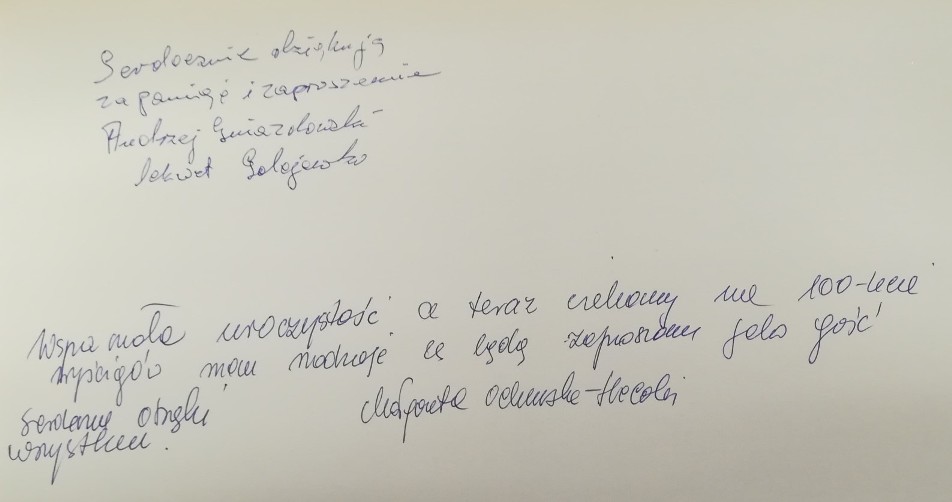 Serdecznie dziękuję
za pamięć i zaproszenie
Andrzej Gwiazdowski
Wspaniała uroczystość a teraz czekamy na 100-lecie
wyścigów mam nadzieję że będę zaproszona jako gość
serdeczne dzięki Małgorzata
wszystkim.